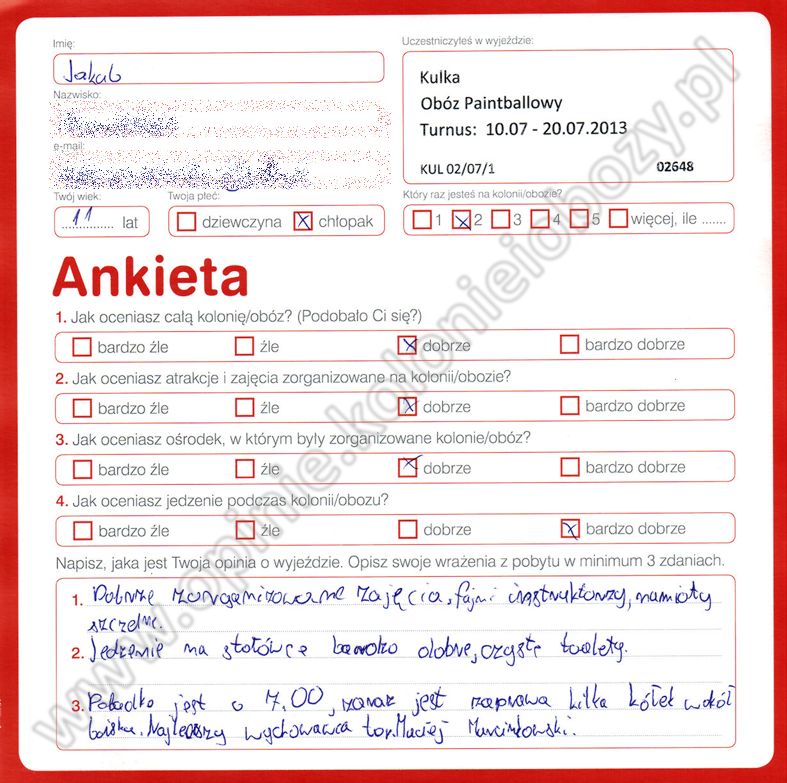 Imię:
Uczestniczyłeś w wyjeździe:
Jakub
Kulka
Obóz Paintballowy
Turnus: 10.07 - 20.07.2013
KUL 02/07/1 02648
Nazwisko:
e-mail:
Twój wiek:
Twoja płeć:
Który raz jesteś na kolonii/obozie?
11 lat
dziewczyna chłopak
1 2 3 4 5 więcej, ile .......
Ankieta
1. Jak oceniasz całą kolonię/obóz? (Podobało Ci się?)
bardzo źle źle dobrze bardzo dobrze
2. Jak oceniasz atrakcje i zajęcia zorganizowane na kolonii/obozie?
bardzo źle źle dobrze bardzo dobrze
3. Jak oceniasz ośrodek, w którym były zorganizowane kolonie/obóz?
bardzo źle źle dobrze bardzo dobrze
4. Jak oceniasz jedzenie podczas kolonii/obozu?
bardzo źle źle dobrze bardzo dobrze
Napisz, jaka jest Twoja opinia o wyjeździe. Opisz swoje wrażenia z pobytu w minimum 3 zdaniach.
1. Dobrze zorganizowane zajęcia, fajni instruktorzy, namioty
szczelne.
2. Jedzenie na stołówce bardzo dobre, czyste toalety.
3. Pobudka jest o 7.00, zaraz jest zaprawa kilka kółek wokół
boiska. Najlepszy wychowawca to p. Maciej
www.opinie.kolonieiobozy.pl